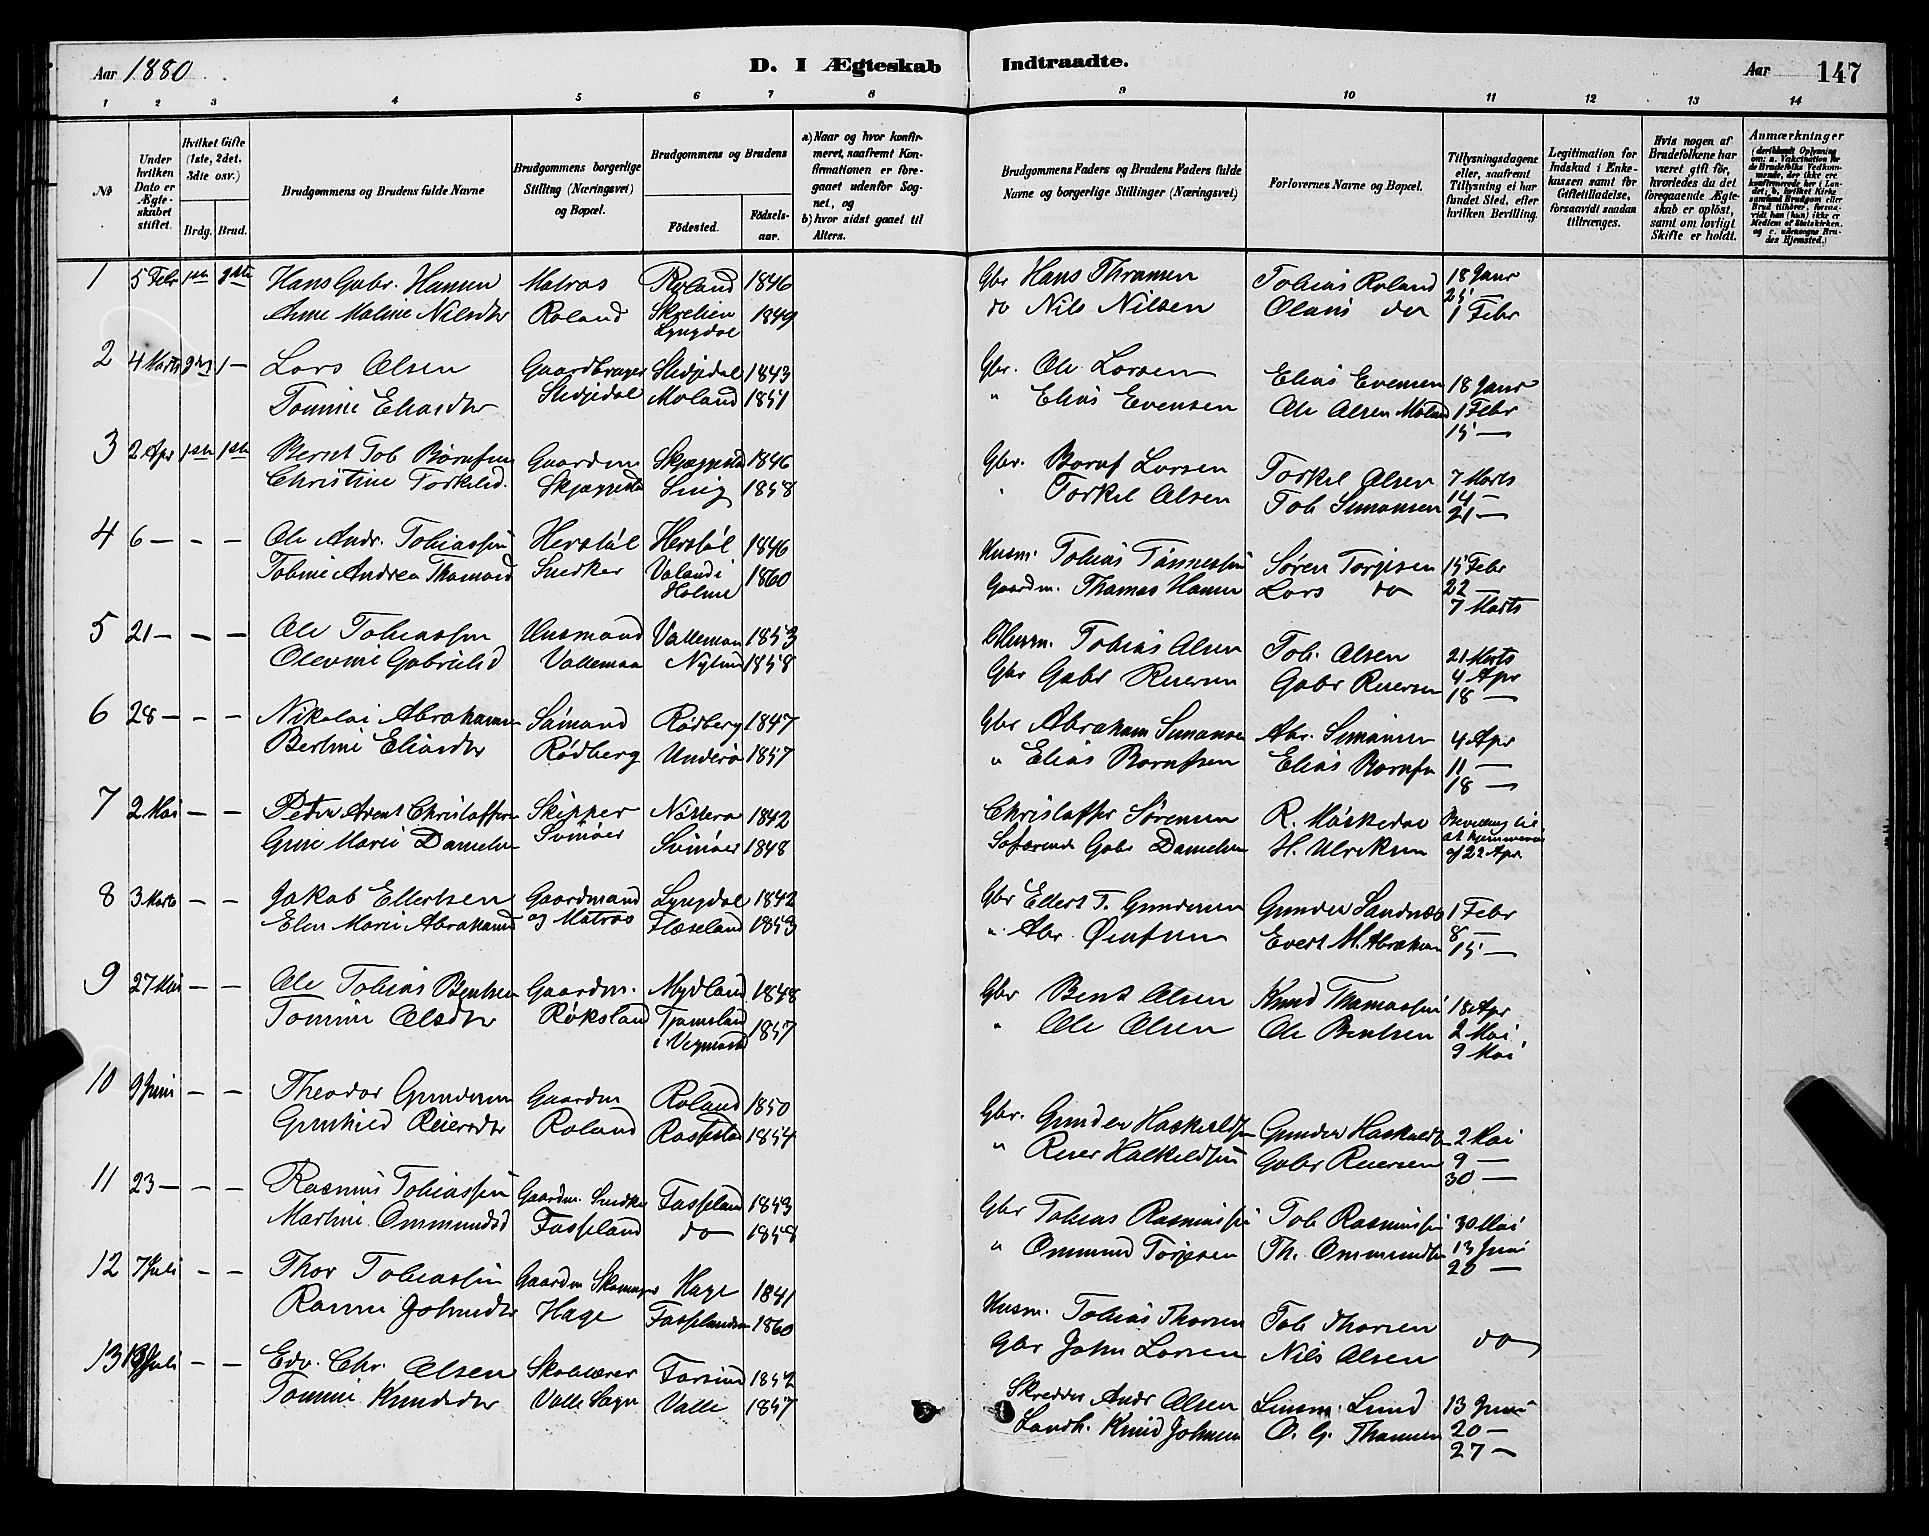 Aar 1880
D. I Ægteskab Indtraadte.
Aar 147
1 2 3 4 5 6 7 8 9 10 11 12 13 14
No
Under hvilken Dato er Ægteskabet stiftet.
Hvilket Gifte (1ste, 2det, 3die osv.)
Brdg. Brud.
Brudgommens og Brudens fulde Navne
Brudgommens borgerlige Stilling (Næringsvei) og Bopæl.
Brudgommens og Brudens
Fødested. Fødselsaar.
a) Naar og hvor konfirmeret, saafremt Konfirmationen er foregaaet udenfor Sognet, og
b) hvor sidst gaaet til Alters.
Brudgommens Faders og Brudens Faders fulde Navne og borgerlige Stillinger (Næringsvei)
Forlovernes Navne og Bopæl.
Tillysningsdagene eller, saafremt Tillysning ei har fundet Sted, efter hvilken Bevilling.
Legitimation for Indskud i Enkekassen samt for Giftetilladelse, forsaavidt saadan tiltrænges.
Hvis nogen af Brudefolkene har været gift før, hvorledes da det foregaaende Ægteskab er opløst, samt om lovligt Skifte er holdt.
Anmærkninger
1 5 Febr 1ste Hans Gabr. Hansen Matros Roland 1846 Gbr Hans Thramsen Tobias Roland 18 Janr
25
Anne Maline Nilsdtr Roland Skrelien Lyngdal 1849 do Nils Nilsen Olaus do 1 Febr
2 4 Marts 1 — Lars Olsen Gaardbruger 1843 Gbr. Ole Larsen Elias Evensen 18 Janr
Tomine Eliasdtr Moland 1851 " Elias Evensen Ole Olsen Moland 1 Febr
15 —
3 2 Apr 1ste 1ste Berent Tob Børufsen Gaardm Skjæggestad 1846 Gbr. Boruf Larsen Torkel Olsen 7 Marts
14 —
Christine Torkelsd. Skjæggestad 1858 " Torkel Olsen Tob Simonsen 21 —
4 6 — — — Ole Andr. Tobiassen Herstøl Herstøl 1846 Husm. Tobias Tønnessen Søren Torjesen 15 Febr
22 —
Tobine Andrea Thomasd Snedker Valand i Holme 1860 Gaardm. Thomas Hansen Lars do 7 Marts
5 21 — — — Ole Tobiassen Husmand Vallemoen 1853 Husm. Tobias Olsen Tob. Olsen 21 Marts
4 Apr
Olevine Gabrielsd Vallemoen 1858 Gbr Gabr Reiersen Gabr Reiersen 18 —
6 28 — — — Nikolai Abrahamsen Sømand Rødberg 1847 Gbr Abraham Simonsen Abr. Simonsen 4 Apr
11 —
Bertine Eliasdtr Rødberg Underø 1857 " Elias Børufsen Elias Børufsn 18 —
7 2 Mai — — Peter Arent Christoffersen Skipper 1842 Christoffer Sørensen R. Møskedal Bevilling til
at
Gine Marie Danielsen Svinøer Svinøer 1848 Søfarende Gabr Danielsen H. Ulriksen af 22 Apr.
8 3 Marts — — Jakob Ellertsen Gaardmand Lyngdal 1842 Gbr Ellert T. Gundersen Gunder Sandnæs 1 Febr
8 —
Elen Marie Abrahamsd og Matros Flæseland 1853 " Abr. Evert M. Abraham 15 —
9 27 Mai — — Ole Tobias Bentsen Gaardm. Mydland 1848 Gbr Bent Olsen Knud Thomassen 18 Apr
2 Mai
Tomine Olsdtr Røksland Tjomsland i Vigmostad 1857 " Ole Olsen Ole Bentsen 9 Mai
10 9 Juni — — Theodor Gundersen Gaardm Roland 1850 Gbr. Gunder Haskeldsen Gunder Haskelds 2 Mai
9 —
Gunhild Reiersdtr Roland 1854 " Reier Halkeldsen Gabr Reiersen 30 —
11 23 — — — Rasmus Tobiassen Gaardm. Snedker Fasseland 1853 Gbr Tobias Rasmussen Tob Rasmussen 30 Mai
13 Juni
Martine Ommundsd Fasseland do 1858 " Ommund Torjesen Th. Ommundsen 20 —
12 7 Juli — — Thor Tobiassen Gaardm Skomager Hage 1841 Husm. Tobias Thorsen Tob Thorsen do
Johnsdtr Hage 1860 Gbr John Larsen Nils Olsen
13 Juli — — Edv. Chr. Olsen Skolelærer Farsund 1852 Skredder Andr Olsen Lensm. Lund 13 Juni
20 —
Tomine Knudsdtr Valle Sogn Valle 1857 Landh. Knud Johnsen O. G. Thomsen 27 —